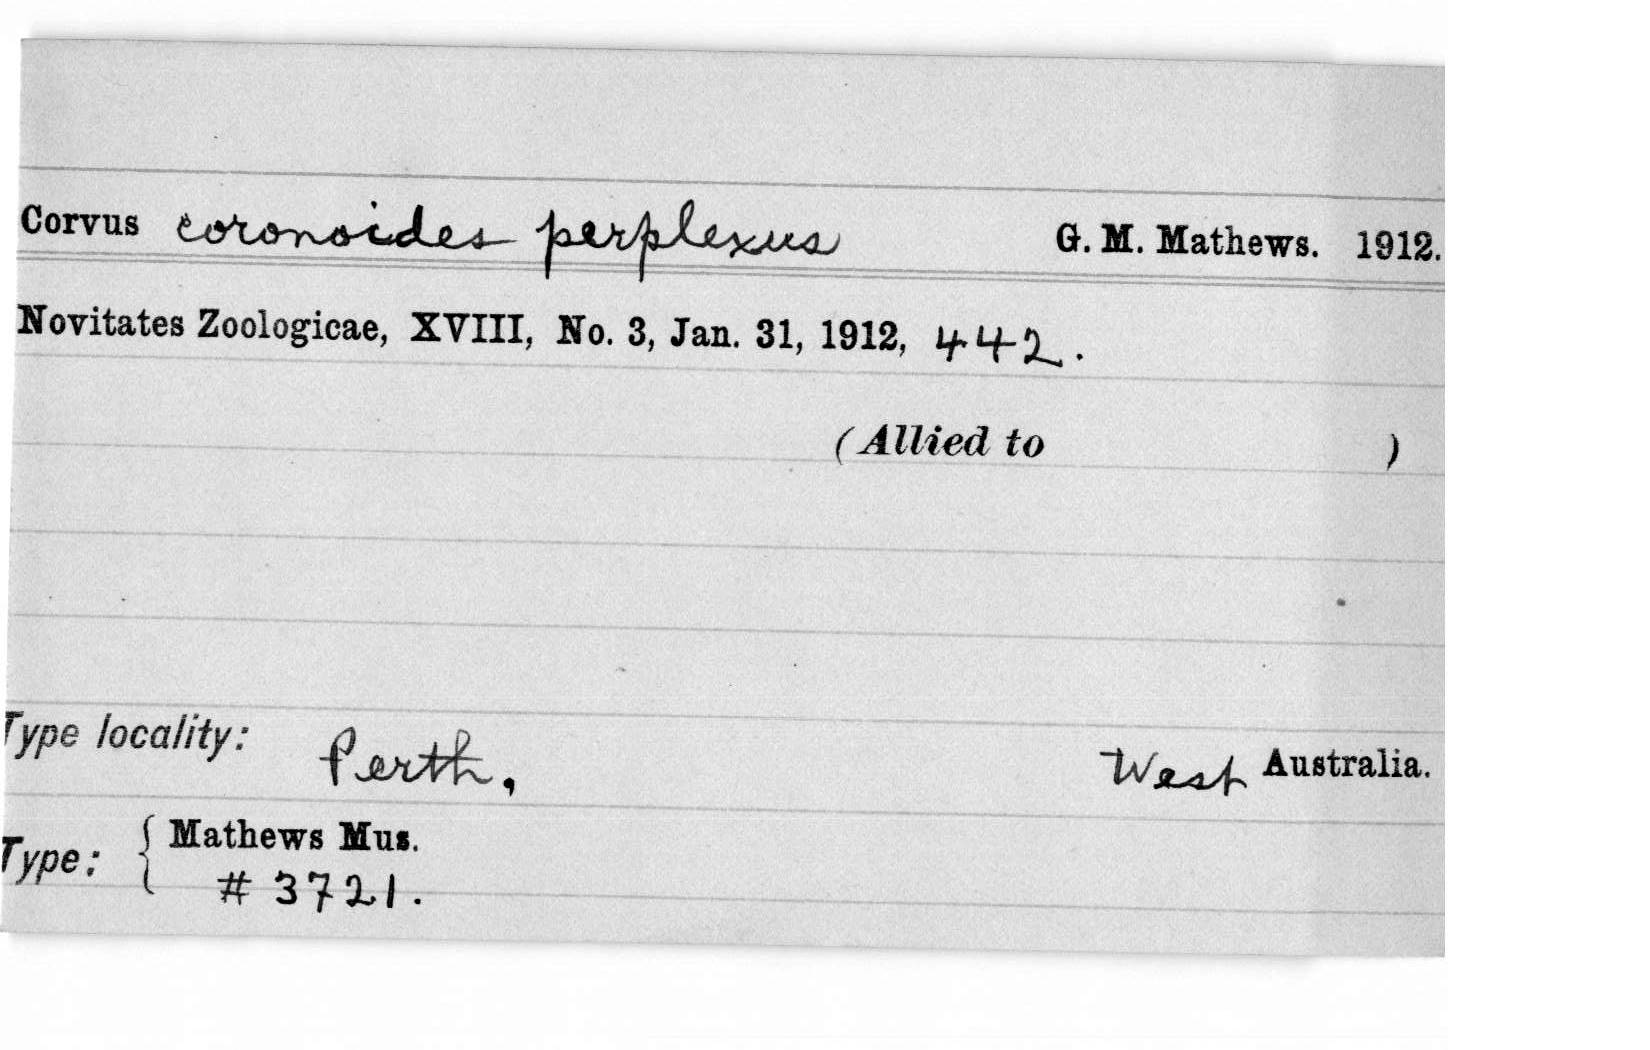 Corvus coronoides perplexus G. M. Mathews. 1912.
Novitates Zoologicae, XVIII, No. 3, Jan. 31, 1912, 442.
(Allied to )
Type locality: Perth, West Australia.
Type: { Mathews Mus.
# 3721.